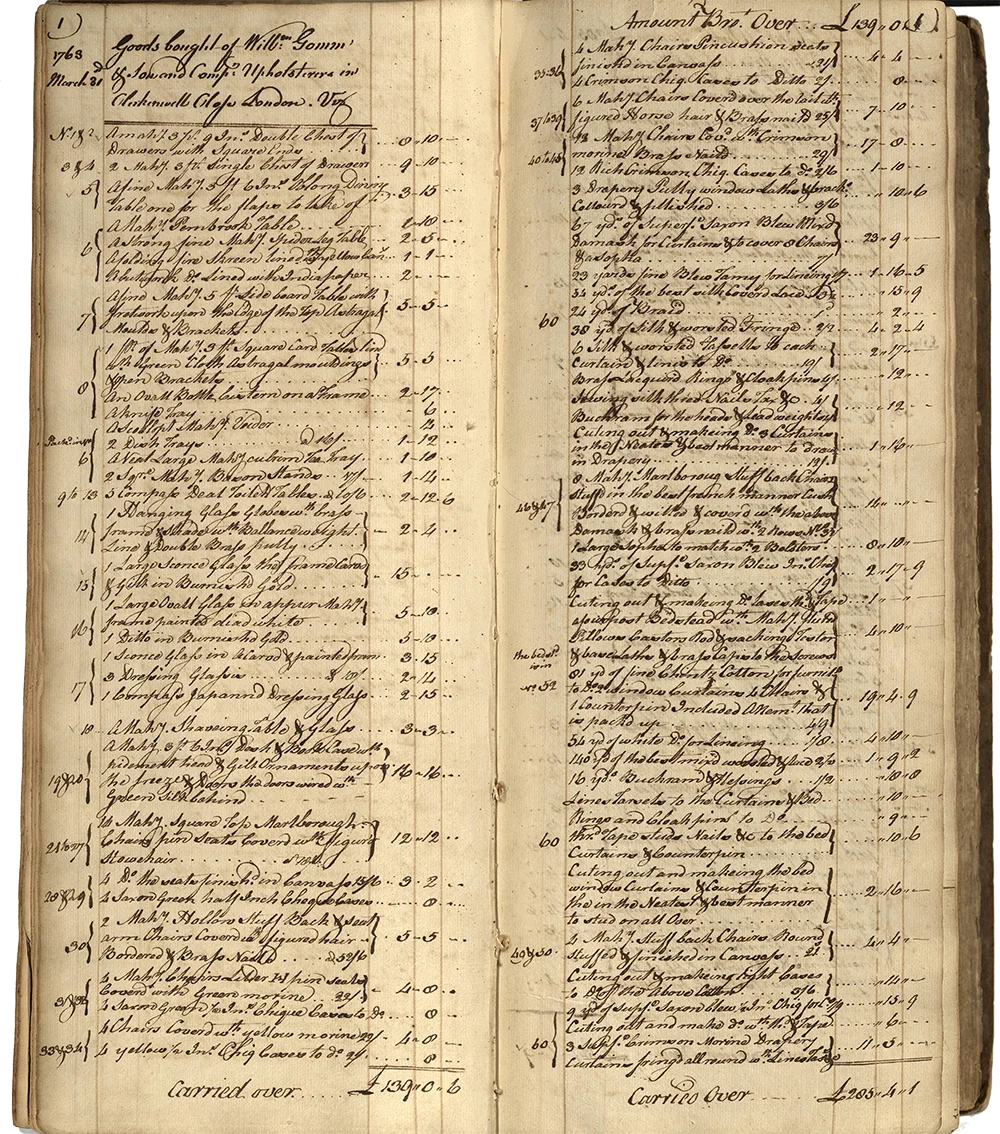 1)
1763
March 31
Goods bought of Will.m Gomm
& Son and Comp.y Upholsterers in
Clerkenwell Close London. Viz
No. 1 & 2 A mah.y 3 ft. 9 In.s Double Chest of
Drawers with Square Ends 8 - 10 -
3 & 4 2 Mah.y 3 ft. Single Chest of Drawers 9 - 10
5 A fine Mah.y 3 ft 6 In.s Oblong Dining
Table one for the flaps to take of 3 - 15
A Mah.y Pembrook Table 1 - 10
6 A Strong fine Mah.y Spider Leg Table 2 - 5
A folding fire Skreen lined 1 - 1
D.o Lined with India paper 2
7 A fine Mah.y 5 ft. Sideboard Table with
fretwork upon the Edge of the Top Astragal
Moulds & Brackets 5 - 5
1 p.r of Mah.y 3 ft. Square Card Tables lin'd
w.th Green Cloth Astragal mouldings
& open Brackets 5 - 5
8 An Ovall Bottle Cistern on a Frame 2 - 17
A knife Tray 6
A Scollopt Mah.y Voider 12
2 Dish Trays @ 16/ 1 - 12
6 A Neat Large Mah.y Tea Tray 1 - 10
2 Sq.r Mah.y Bason Stands 1 - 4
9 to 13 5 Compass Deal Toilet Tables @ 10/6 2 - 12 - 6
14 1 Hanging Glass Globe w.th brass
frame & shade w.th Ballance weight
Line & Double Brass pully 2 - 4
15 1 Large Sconce Glass the frame Carvd
& Gilt in Burnish'd Gold 15
16 1 Large Ovall Glass in a Mah.y
frame painted dead white 5 - 10
1 Ditto in Burnishd Gold
1 Sconce Glass in a Carvd & painted frame 3 - 15
17 3 Dressing Glasses 2 - 14
1 Compass Japannd Dressing Glass 2 - 15
18 A Mah.y Shaveing Table & Glass 3 - 3
19 & 20 A Mah.y 3 ft. 6 In.s Desk & Book Case with
pediment head & Gilt Ornaments upon
the freeze & Doors the doors wired w.th
Green Silk behind 16 - 16
21 to 27 Mah.y Square Top Marlborough
Chairs pin Seats Coverd w.th figurd
Horsehair 12 - 12
28 & 29 4 D.o the seats finish.d in Canvass 15/6 3 - 2
4 Saxon Green half Inch Cheq Cases 8
30 2 Mah.y Hollow Stuff Back & Seat
arm Chairs Coverd w.th figured hair
Bordered & Brass Naild @ 52/6 5 - 5
31 & 32 4 Mah.y Chairs pin seats
Coverd with Green morine 22/ 4 - 8
4 Saxon Green In.s Cheque Cases to D.o 8
33 & 34 4 Chairs Coverd w.th yellow morine 22/ 4 - 8
4 yellow In.s Cheq Cases to d.o 2/ 8
Carried over £ 139 - 0 - 6
Amount Bro.t Over £ 139 " 0 " 6
35 & 36 4 Mah.y Chairs Pincushion Seats
finishd in Canvass 21/ 4 - 4
4 Crimson Cheq Cases to Ditto 2/ 8
37 & 39 6 Mah.y Chairs Coverd over the rail w.th
figured Horse hair & Brass naild 25/ 7 - 10
40 to 45 12 Mah.y Chairs Cov.d w.th Crimson
morine & Brass Naild 29/ 17 - 8
12 Rich Crimson Cheq Cases to d.o 2/6 1 - 10
3 Drapery Pully window Laths & Brack.s
Colourd & polished 3/6 10 - 6
67 yd.s of Superf.e Saxon Blew Mixd
Damask for Curtains & to cover 8 Chairs
& a sopha 23 " 9
23 yards fine Blew Tamy for Lineing 1 - 16 - 5
34 yd.s of the best silk Coverd Lace 15 " 9
60 24 yd.s of Braid 2
38 yd.s of Silk & worsted Fringe 2/2 4 - 2 - 4
6 Silk & worsted Tassells to each
Curtain & lines to D.o 2 " 17
Brass Lacquerd Rings & Cloak pins 12
Sewing silk thred Nails Tax &c 4/
Buckram for the heads & Lead weights 12
Cuting out & makeing D.o 3 Curtains
in the Neatest & best manner to draw
in Drapery 12/ 1 " 16
46 & 47 8 Mah.y Marlboroug Stuff back Chairs
stuff'd in the best french manner
Borderd & coverd w.th the above
Damask & brass naild 14
1 Large Sopha to match w.th 2 Bolsters 8 " 10
33 yd.s of Sup.r Saxon Blew In.s Cheq
for Cases to Ditto 1/9 2 " 17 - 9
Cuting out & makeing D.o Cases thr.d & Tape 1
a four post Bedstead w.th Mah.y fluted
Pillows Castors Rod & sacking Tester
& base Laths & brass Caps to the Screws 4 " 10
the bedst.d
in
No. 52 81 yd of fine Chintz Cotton for furnit.e
to D.o 2 window Curtains 4 Chairs &
1 Counterpin Included
is packd up 4/9 19 " 4 . 9
54 yd of white D.o for Lineing 1/8 4 " 10
140 yd of the best mixd worsted Lace 1 " 9 " 2
16 yd.s Buckram 1/2 18 " 8
Lines Tassels to the Curtains & Bed 10
Rings and Cloak pins to D.o 9
60 thr.d Tape studs Nails &c to the bed
Curtains & Counterpin 10 " 6
Cuting out and makeing the bed
window Curtains & Counterpin in
the in the Neatest & best manner
to stud on all Over 2 " 16
49 & 50 4 Mah.y Stuff back Chairs Round
Stuffed & finished in Canvass 21 4 " 4
Cuting out & makeing Eight Cases
to D.o of the above Cotton 3/6 14
9 yd.s of Sup.r Saxon blew In.s Cheq for D.o 1/9 15 " 9
Cuting out and make d.o w.th thr.d & Tape 6
60 3 Sup.r Crimson Morine Drapery
Curtains fringd all round w.th Lines Tassels 11 " 5
Carried Over £ 285 " 4 " 1